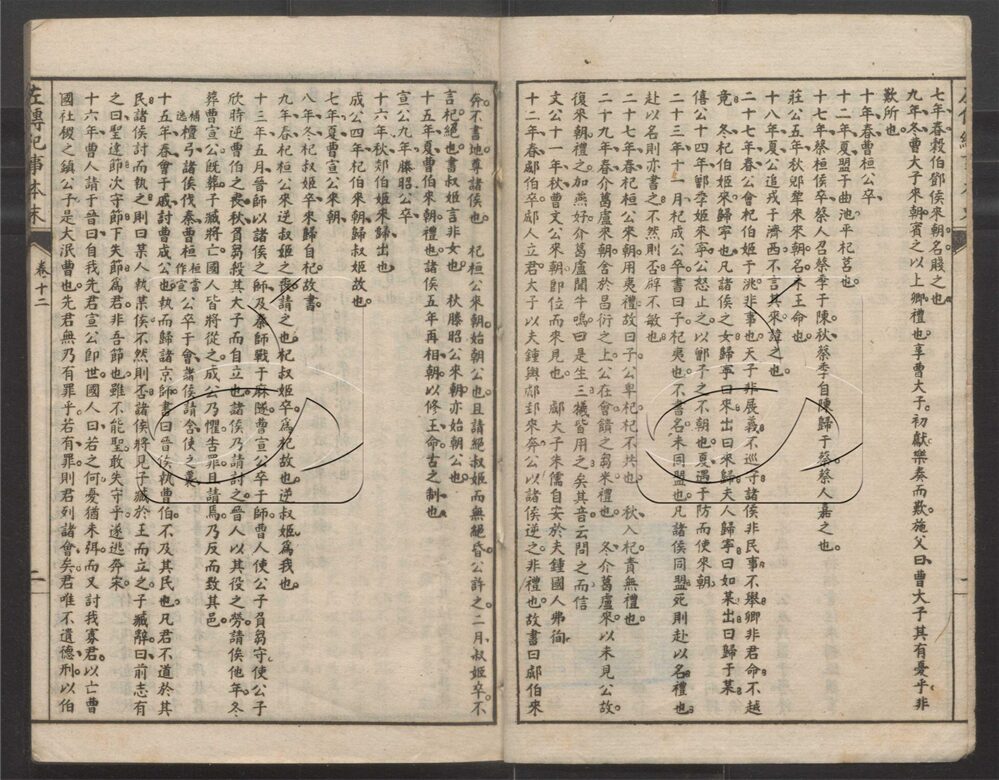 七年春穀伯鄧侯來朝名賤之也
九年冬曹大子來朝賓之以上卿禮也享曹大子初獻樂奏而歎施父曰曹大子其有憂乎非
歎所也
十年春曹桓公卒
十二年夏盟于曲池平杞莒也
十七年蔡桓侯卒蔡人召蔡季于陳秋蔡季自陳歸于蔡蔡人嘉之也
莊公五年秋郳犂來來朝名未王命也
十八年夏公追戎于濟西不言其來諱之也
二十七年春公會杞伯姬于洮非事也天子非展義不巡守諸侯非民事不舉卿非君命不越
竟 冬杞伯姬來歸寧也凡諸侯之女歸寧曰來出曰來歸夫人歸寧曰如某出曰歸于某
僖公十四年鄫季姬來寧公怒止之以鄫子之不朝也夏遇于防而使來朝
二十三年十一月杞成公卒書曰子杞夷也不書名未同盟也凡諸侯同盟死則赴以名禮也
赴以名則亦書之不然則否辟不敏也
二十七年春杞桓公來朝用夷禮故曰子公卑杞杞不共也 秋入杞責無禮也
二十九年春介葛盧來朝舍於昌衍之上公在會饋之芻米禮也 冬介葛盧來以未見公故
復來朝禮之加燕好介葛盧聞牛鳴曰是生三犧皆用之矣其音云問之而信
文公十一年秋曹文公來朝卽位而來見也 郕大子朱儒自安於夫鍾國人弗徇
十二年春郕伯卒郕人立君大子以夫鍾與郕邽來奔公以諸侯逆之非禮也故書曰郕伯來
奔不書地尊諸侯也 杞桓公來朝始朝公也且請絕叔姬而無絕昏公許之二月叔姬卒不
言杞絕也書叔姬言非女也 秋滕昭公來朝亦始朝公也
十五年夏曹伯來朝禮也諸侯五年再相朝以修王命古之制也
宣公九年滕昭公卒
十六年秋郯伯姬來歸出也
成公四年杞伯來朝歸叔姬故也
七年夏曹宣公來朝
八年冬杞叔姬卒來歸自杞故書
九年春杞桓公來逆叔姬之喪請之也杞叔姬卒爲杞故也逆叔姬爲我也
十三年五月晉師以諸侯之師及秦師戰于麻隧曹宣公卒于師曹人使公子負芻守使公子
欣時逆曹伯之喪秋負芻殺其大子而自立也諸侯乃請討之晉人以其役之勞請俟他年冬
葬曹宣公旣葬子臧將亡國人皆將從之成公乃懼告罪且請焉乃反而致其邑
補逸檀弓諸侯伐秦曹桓桓當作宣公卒于會諸侯請含使之襲
十五年春會于戚討曹成公也執而歸諸京師書曰晉侯執曹伯不及其民也凡君不道於其
民諸侯討而執之則曰某人執某侯不然則否諸侯將見子臧於王而立之子臧辭曰前志有
之曰聖達節次守節下失節爲君非吾節也雖不能聖敢失守乎遂逃奔宋
十六年曹人請于晉曰自我先君宣公卽世國人曰若之何憂猶未弭而又討我寡君以亡曹
國社稷之鎮公子是大泯曹也先君無乃有罪乎若有罪則君列諸會矣君唯不遺德刑以伯
左傳紀事本末 卷十二 二